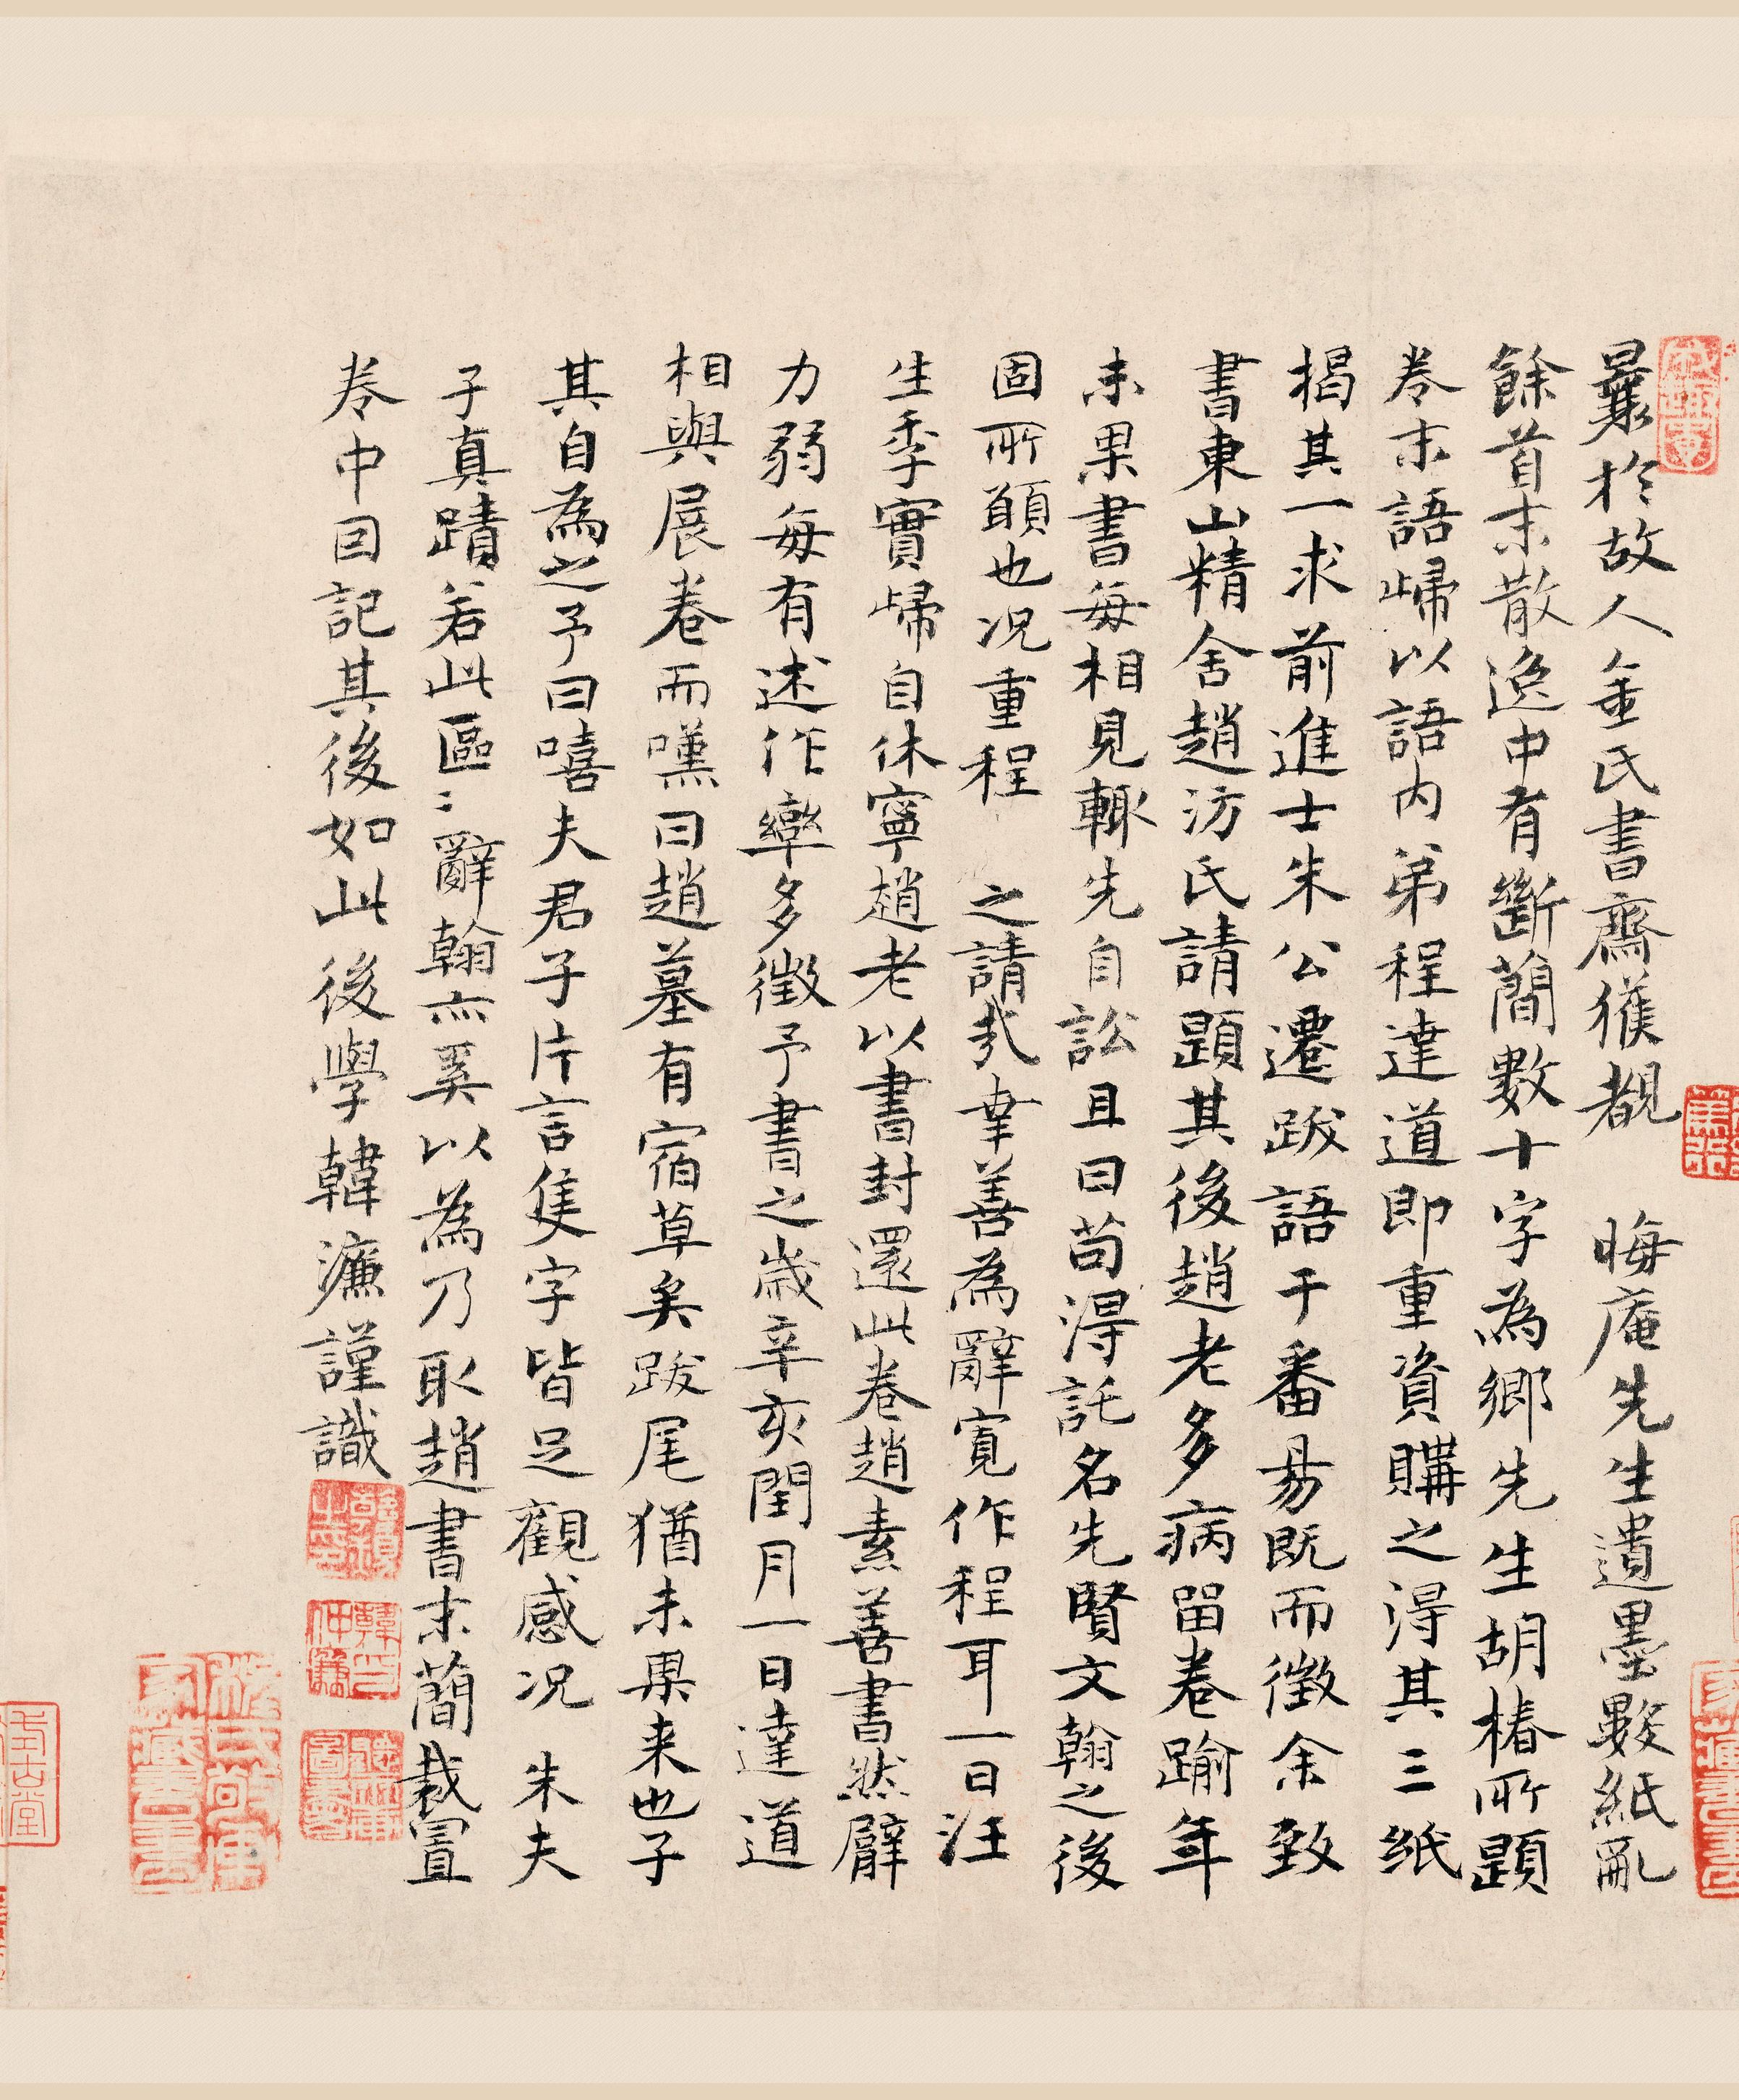 曩於故人金氏書齋獲覩　晦庵先生遺墨數紙亂
餘首末散逸中有斷簡數十字為鄉先生胡椿所題
卷末語歸以語內弟程達道即重資購之得其三紙
揭其一求前進士朱公遷跋語于番昜既而徵余致
書東山精舍趙汸氏請題其後趙老多病留卷踰年
未果書每相見輙先自訟且曰苟得託名先賢文翰之後
固所願也况重程　之請哉幸善為辭寬作程耳一日汪
生季實歸自休寧趙老以書封還此卷趙素善書然臂
力弱每有述作率多徵予書之歲辛亥閏月一日達道
相與展卷而嘆曰趙墓有宿草矣跋尾猶未果来也子
其自為之予曰嘻夫君子片言隻字皆足觀感况　朱夫
子真蹟若此區〻辭翰亦奚以為乃取趙書末簡裁置
卷中因記其後如此後學韓濂謹識